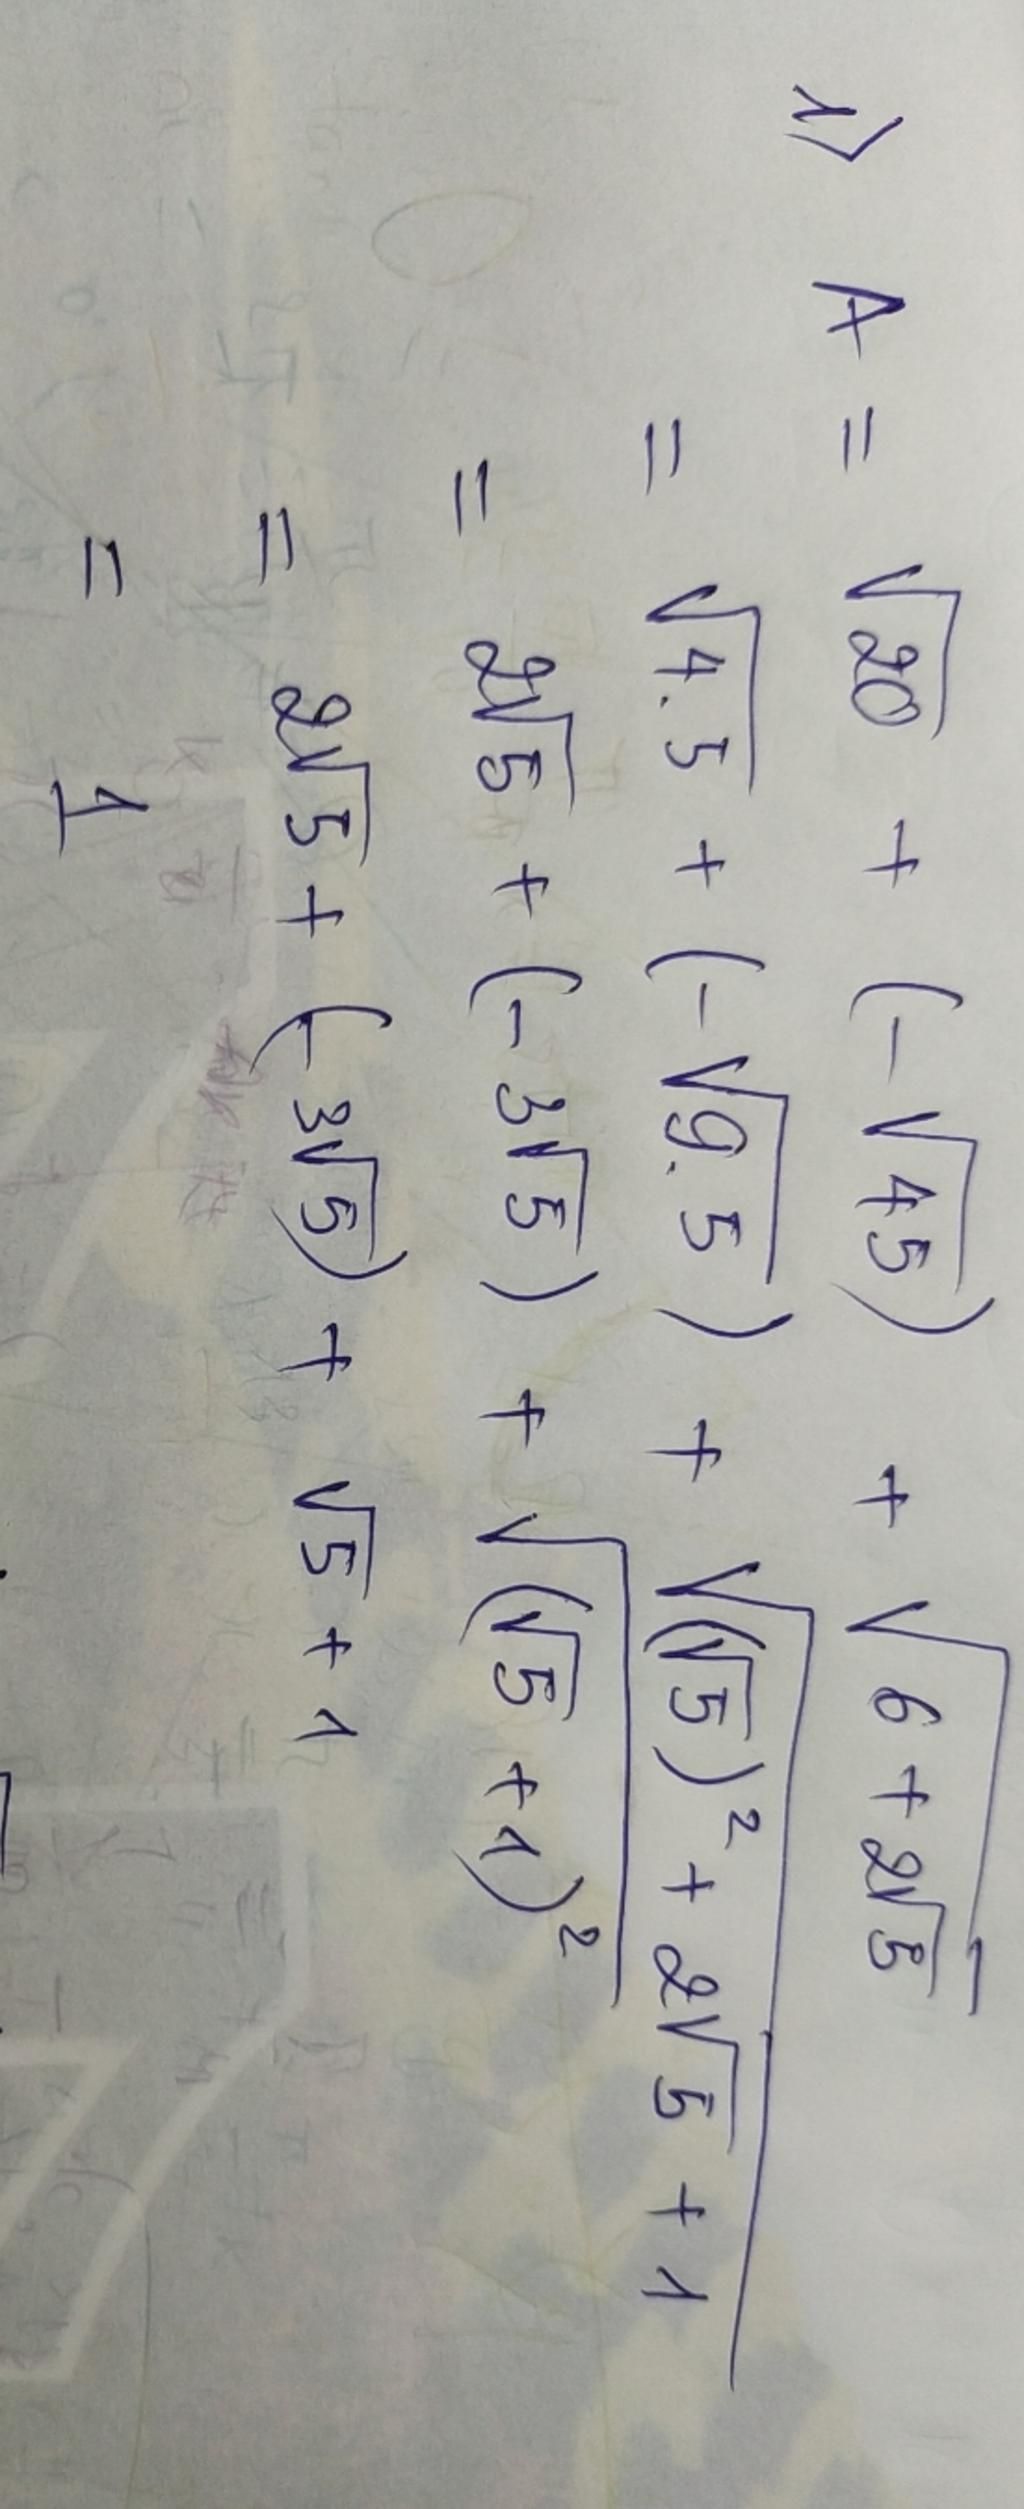 1) A = √20 + (-√45) + √(6 + 2√5)
= √(4.5) + (-√(9.5)) + √((√5)² + 2√5 + 1)
= 2√5 + (-3√5) + √((√5 + 1)²)
= 2√5 + (-3√5) + √5 + 1
= 1